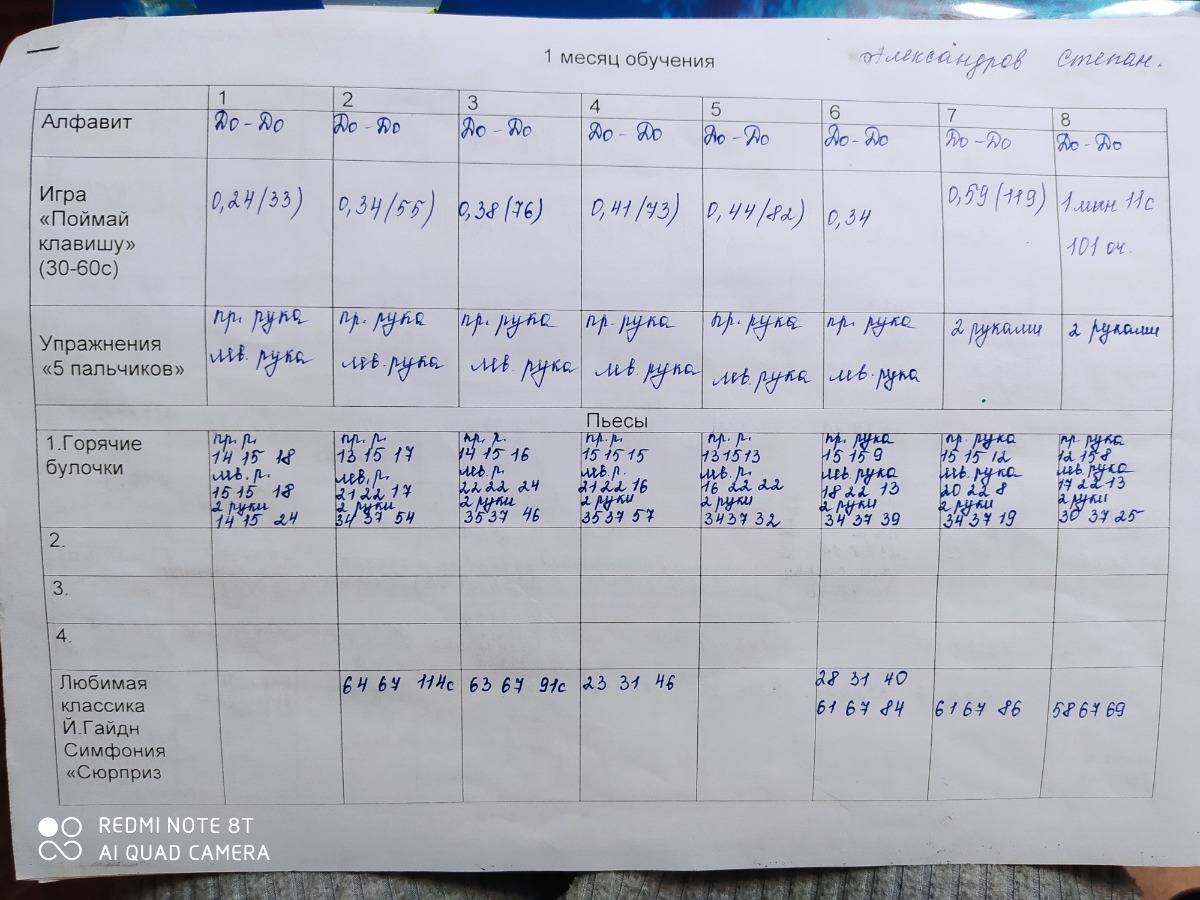 1 месяц обучения
Александров Степан.
1 2 3 4 5 6 7 8
Алфавит До-До До-До До-До До-До До-До До-До До-До До-До
Игра
«Поймай
клавишу»
(30-60с)
0,24/33) 0,34/55) 0,38(76) 0,41/73) 0,44/82) 0,34 0,59(119) 1 мин 11с
101 оч.
Упражнения
«5 пальчиков»
пр. рука пр. рука пр. рука пр. рука пр. рука пр. рука 2 руками 2 руками
лев. рука лев. рука лев. рука лев. рука лев. рука лев. рука
Пьесы
1.Горячие
булочки
пр. р. пр. р. пр. р. пр. р. пр. р. пр. рука пр. рука пр рука
14 15 18 13 15 17 14 15 16 15 15 15 13 15 13 15 15 9 15 15 12 12 15 8
лев. р. лев. р. лев. р. лев. р. лев. р. лев рука лев рука лев рука
15 15 18 21 22 17 22 22 24 21 22 16 16 22 22 18 22 13 20 22 8 17 22 13
2 руки 2 руки 2 руки 2 руки 2 руки 2 руки 2 руки 2 руки
14 15 24 34 37 54 35 37 46 35 37 57 34 37 32 34 37 39 34 37 19 30 37 25
2.
3.
4.
Любимая
классика
Й.Гайдн
Симфония
«Сюрприз
64 67 114с 63 67 91с 23 31 46 28 31 40
61 67 84 61 67 86 58 67 69
REDMI NOTE 8T
AI QUAD CAMERA